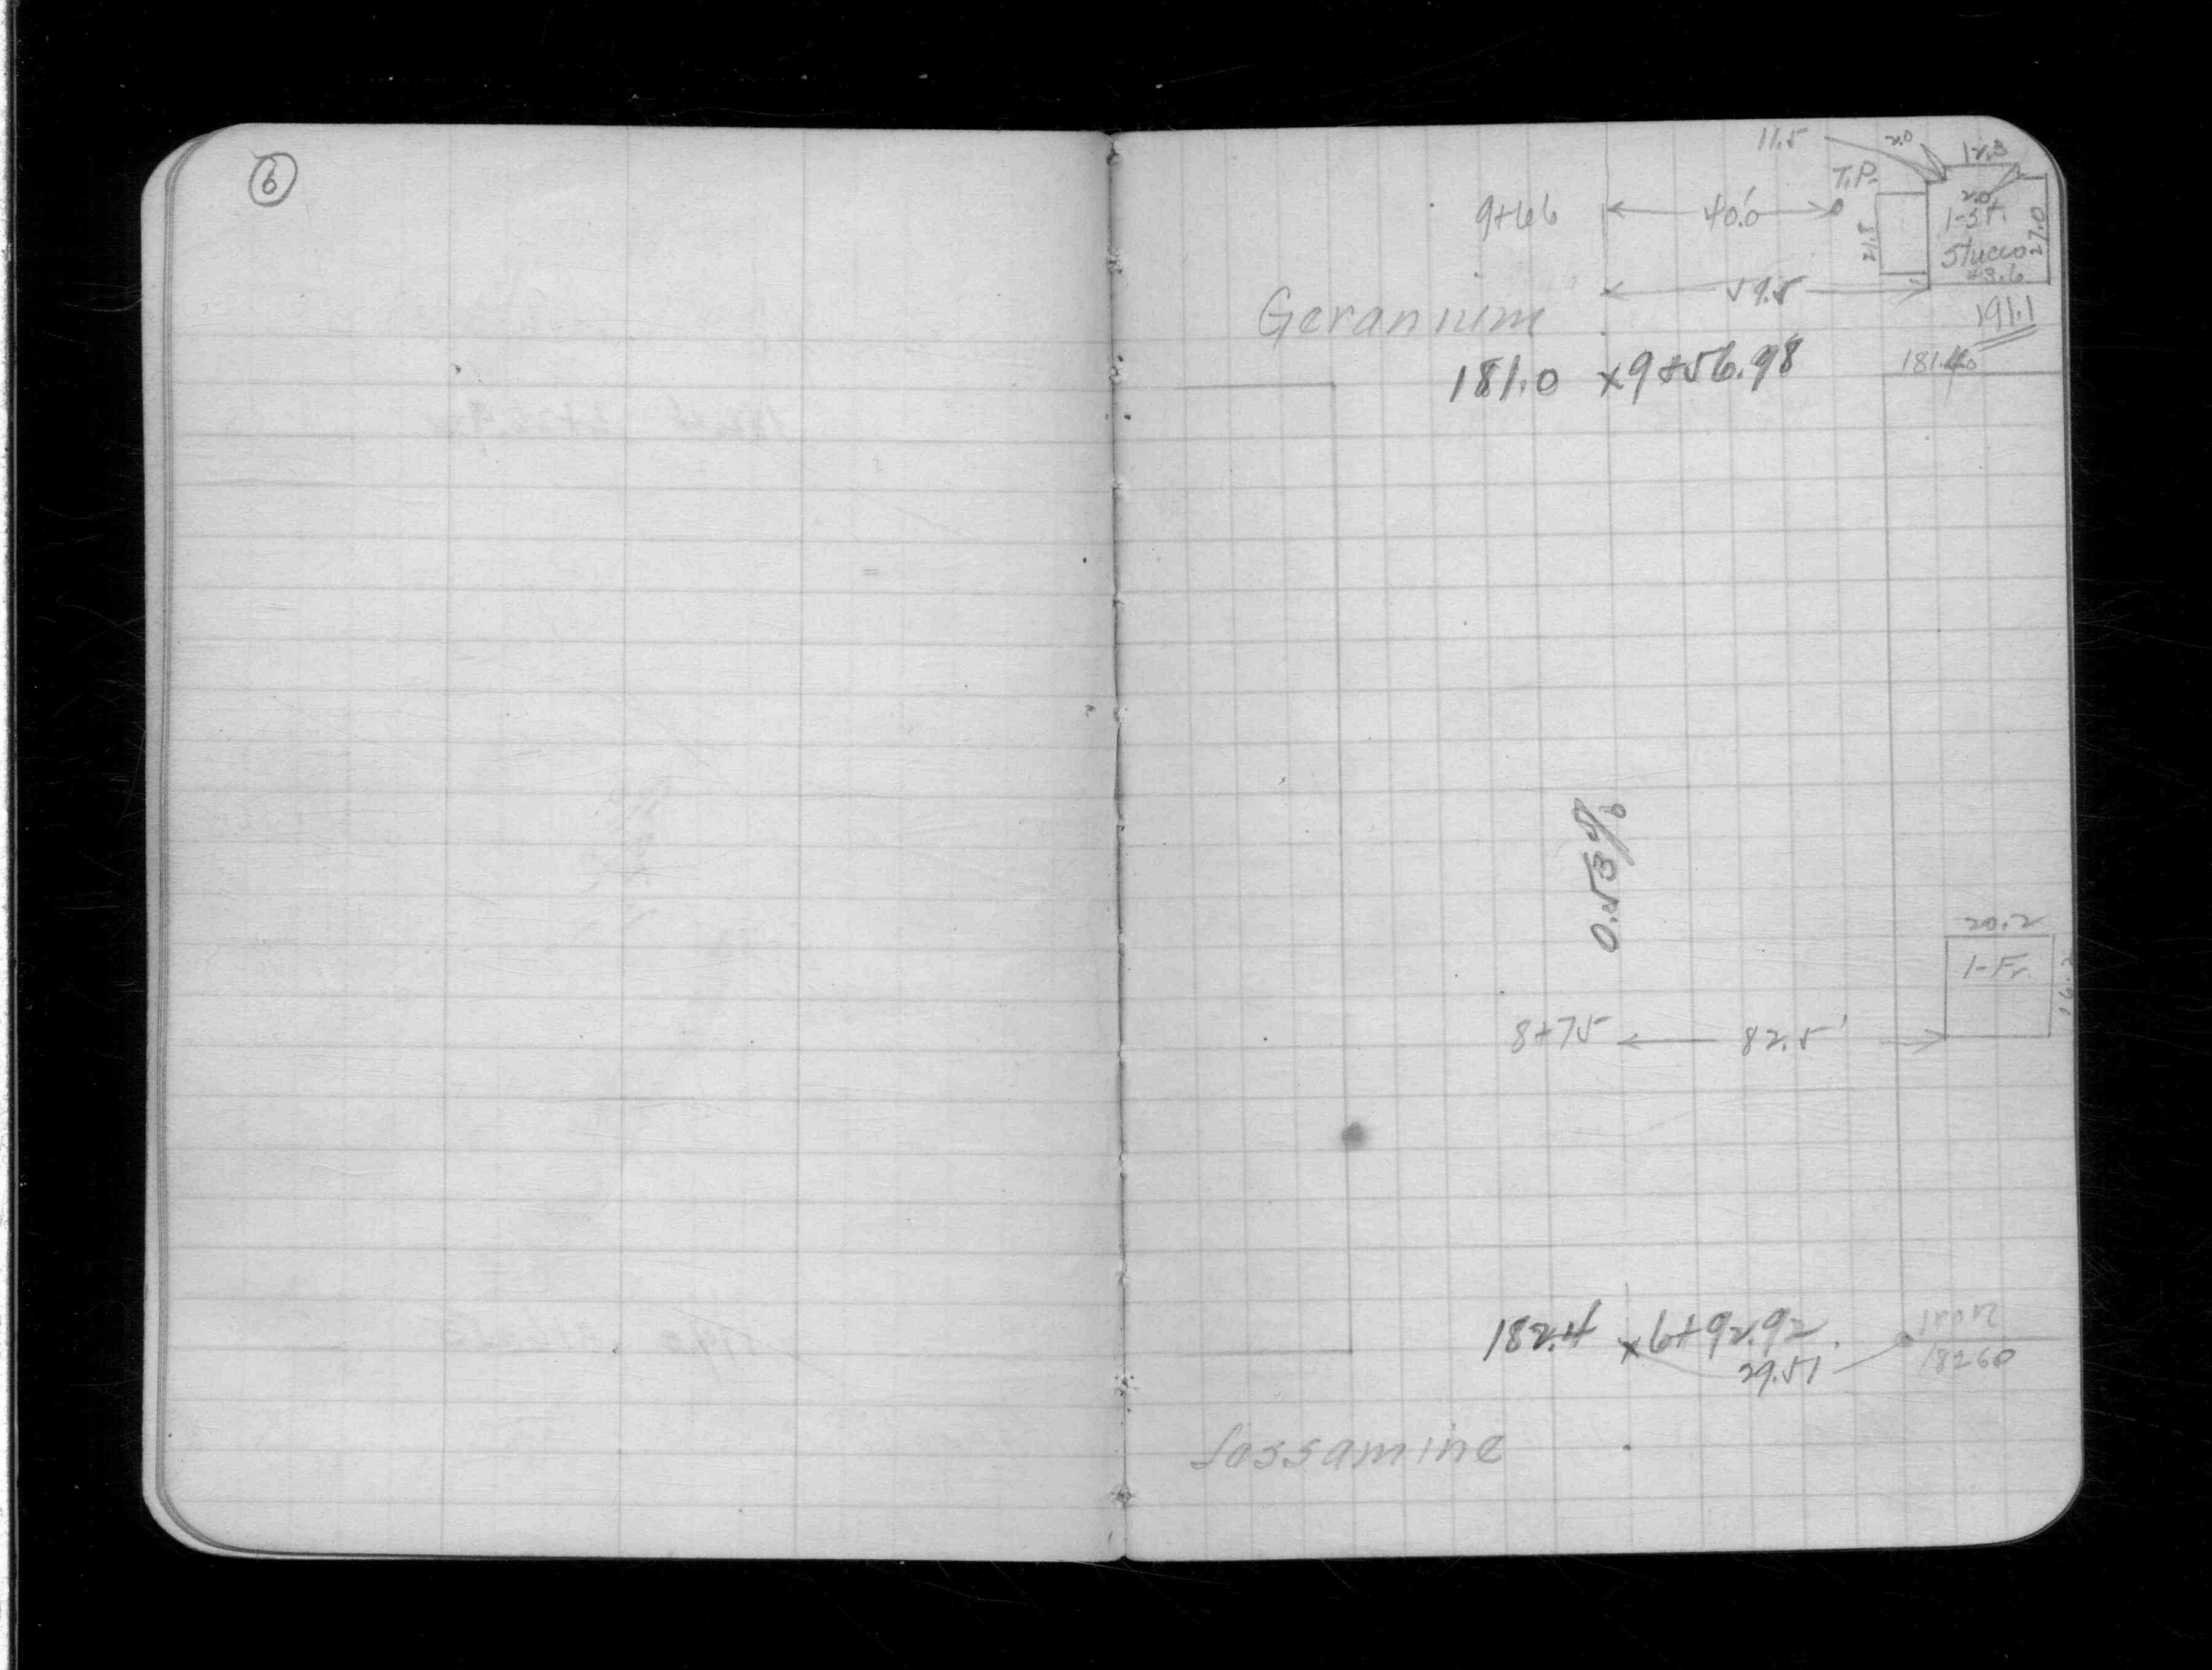 6
11.5 2.0 12.3
T.P.
9+66 40.0' 2.0
1-St.
21.8 Stucco 27.0
+3.6
59.5
Gerannium 191.1
181.0 x9+56.98 181.40
0.53%
20.2
1-Fr.
16.2
8+75 82.5'
182.4 x6+92.92 Iron
29.51 18260
Jassamine